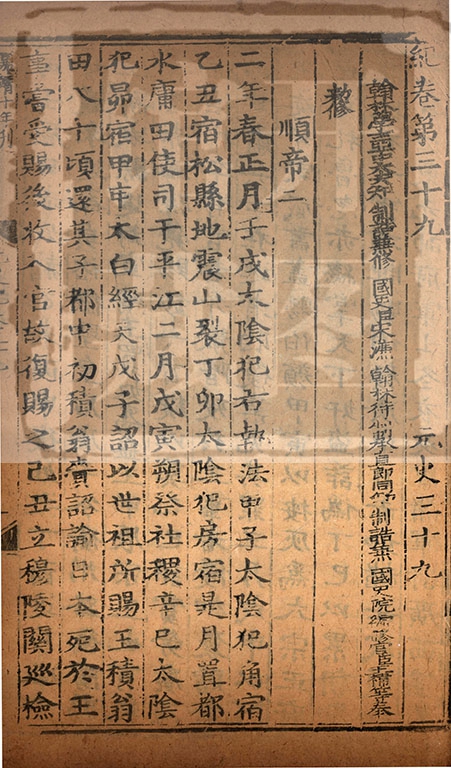 紀卷第三十九 元史三十九
翰林學士亞中大夫知制誥兼修 國史臣宋濂 翰林待制承直郎同知制誥兼 國史院編修官臣王禕等奉
敕
順帝二
二年春正月壬戌太陰犯右執法甲子太陰犯角宿
乙丑宿松縣地震山裂丁卯太陰犯房宿是月置都
水庸田使司于平江二月戊寅朔祭社稷辛巳太陰
犯昴宿甲申太白經天戊子詔以世祖所賜王積翁
田八十頃還其子都中初積翁賫詔諭日本死於王
事嘗受賜後收入官故復賜之己丑立穆陵關巡檢